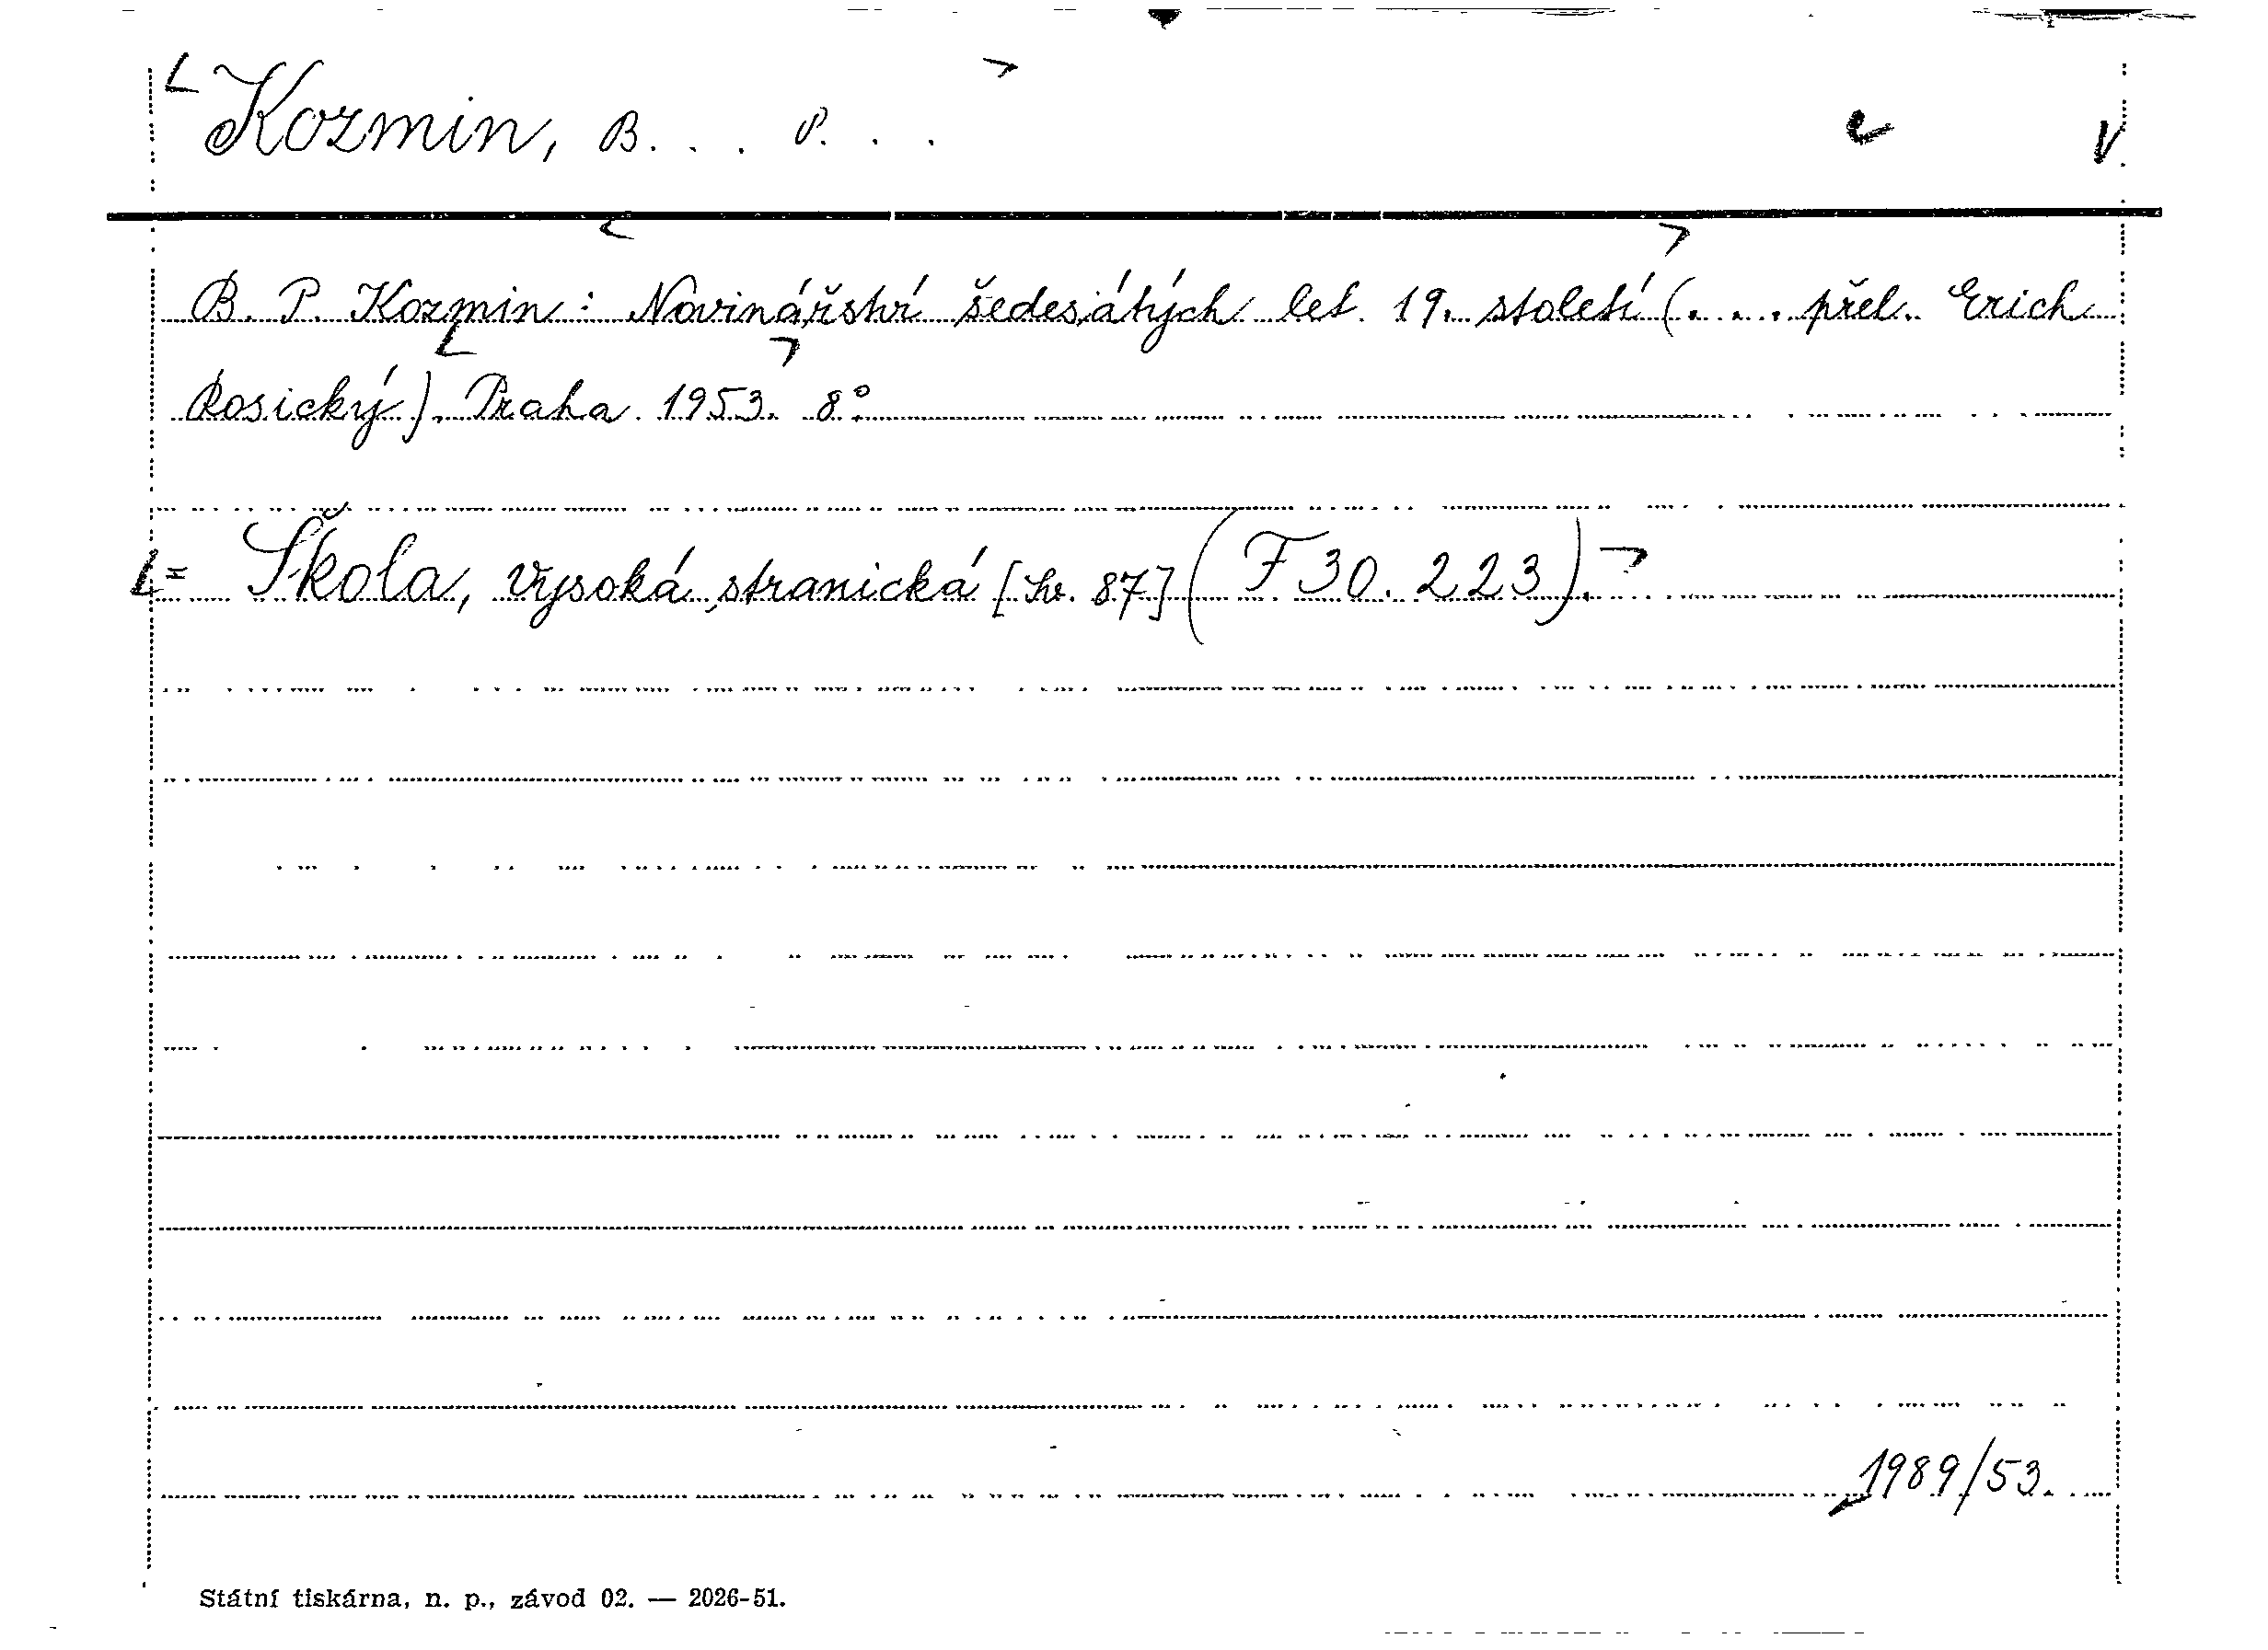 Kozmin, B. . . P. . .
B. P. Kozmin: Novinářství šedesátých let 19. století (. . . přel. Erich
Rosický). Praha 1953. 8°
= Škola, vysoká stranická [Sv. 87] (F 30.223).
1989/53.
Státní tiskárna, n. p., závod 02. — 2026-51.